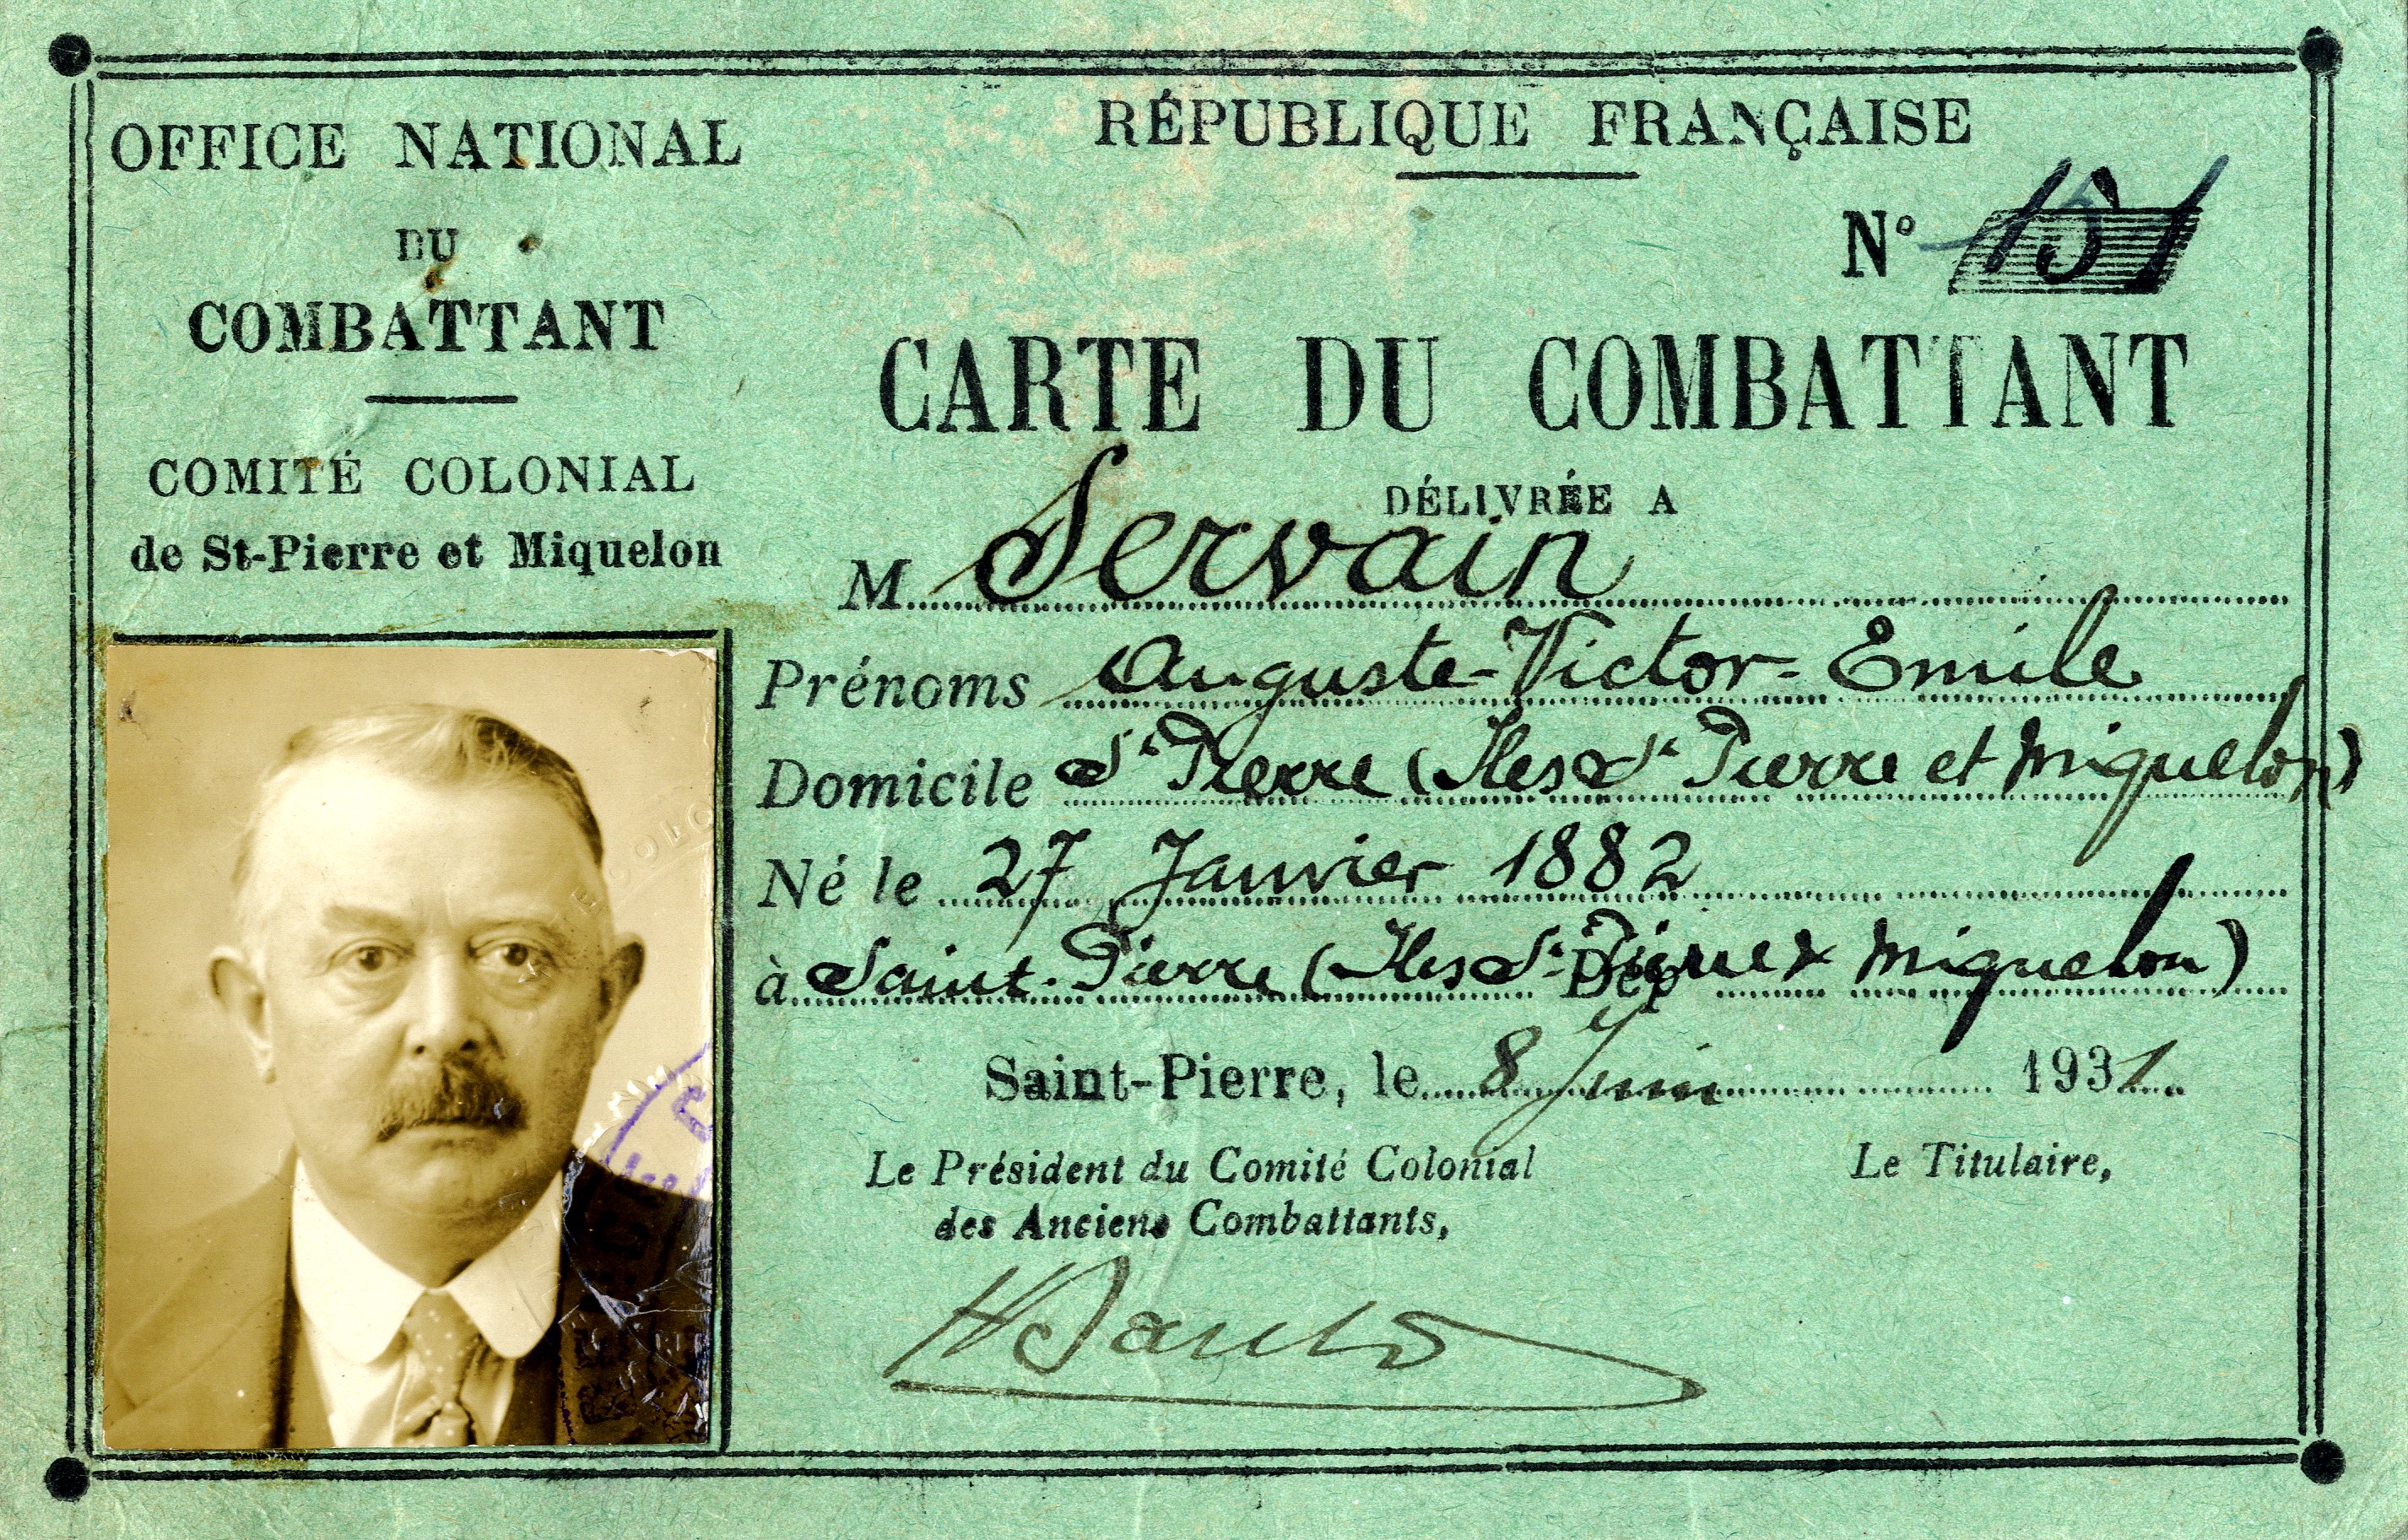 OFFICE NATIONAL
DU
COMBATTANT
COMITÉ COLONIAL
de St-Pierre et Miquelon
RÉPUBLIQUE FRANÇAISE
N° 151
CARTE DU COMBATTANT
DÉLIVRÉE A
M Servain
Prénoms Auguste-Victor-Emile
Domicile St Pierre (Iles St Pierre et Miquelon)
Né le 27 Janvier 1882
à Saint-Pierre (Iles St Pierre & Miquelon) Dép
Saint-Pierre, le 8 Juin 1931.
Le Président du Comité Colonial
des Anciens Combattants,
Le Titulaire,